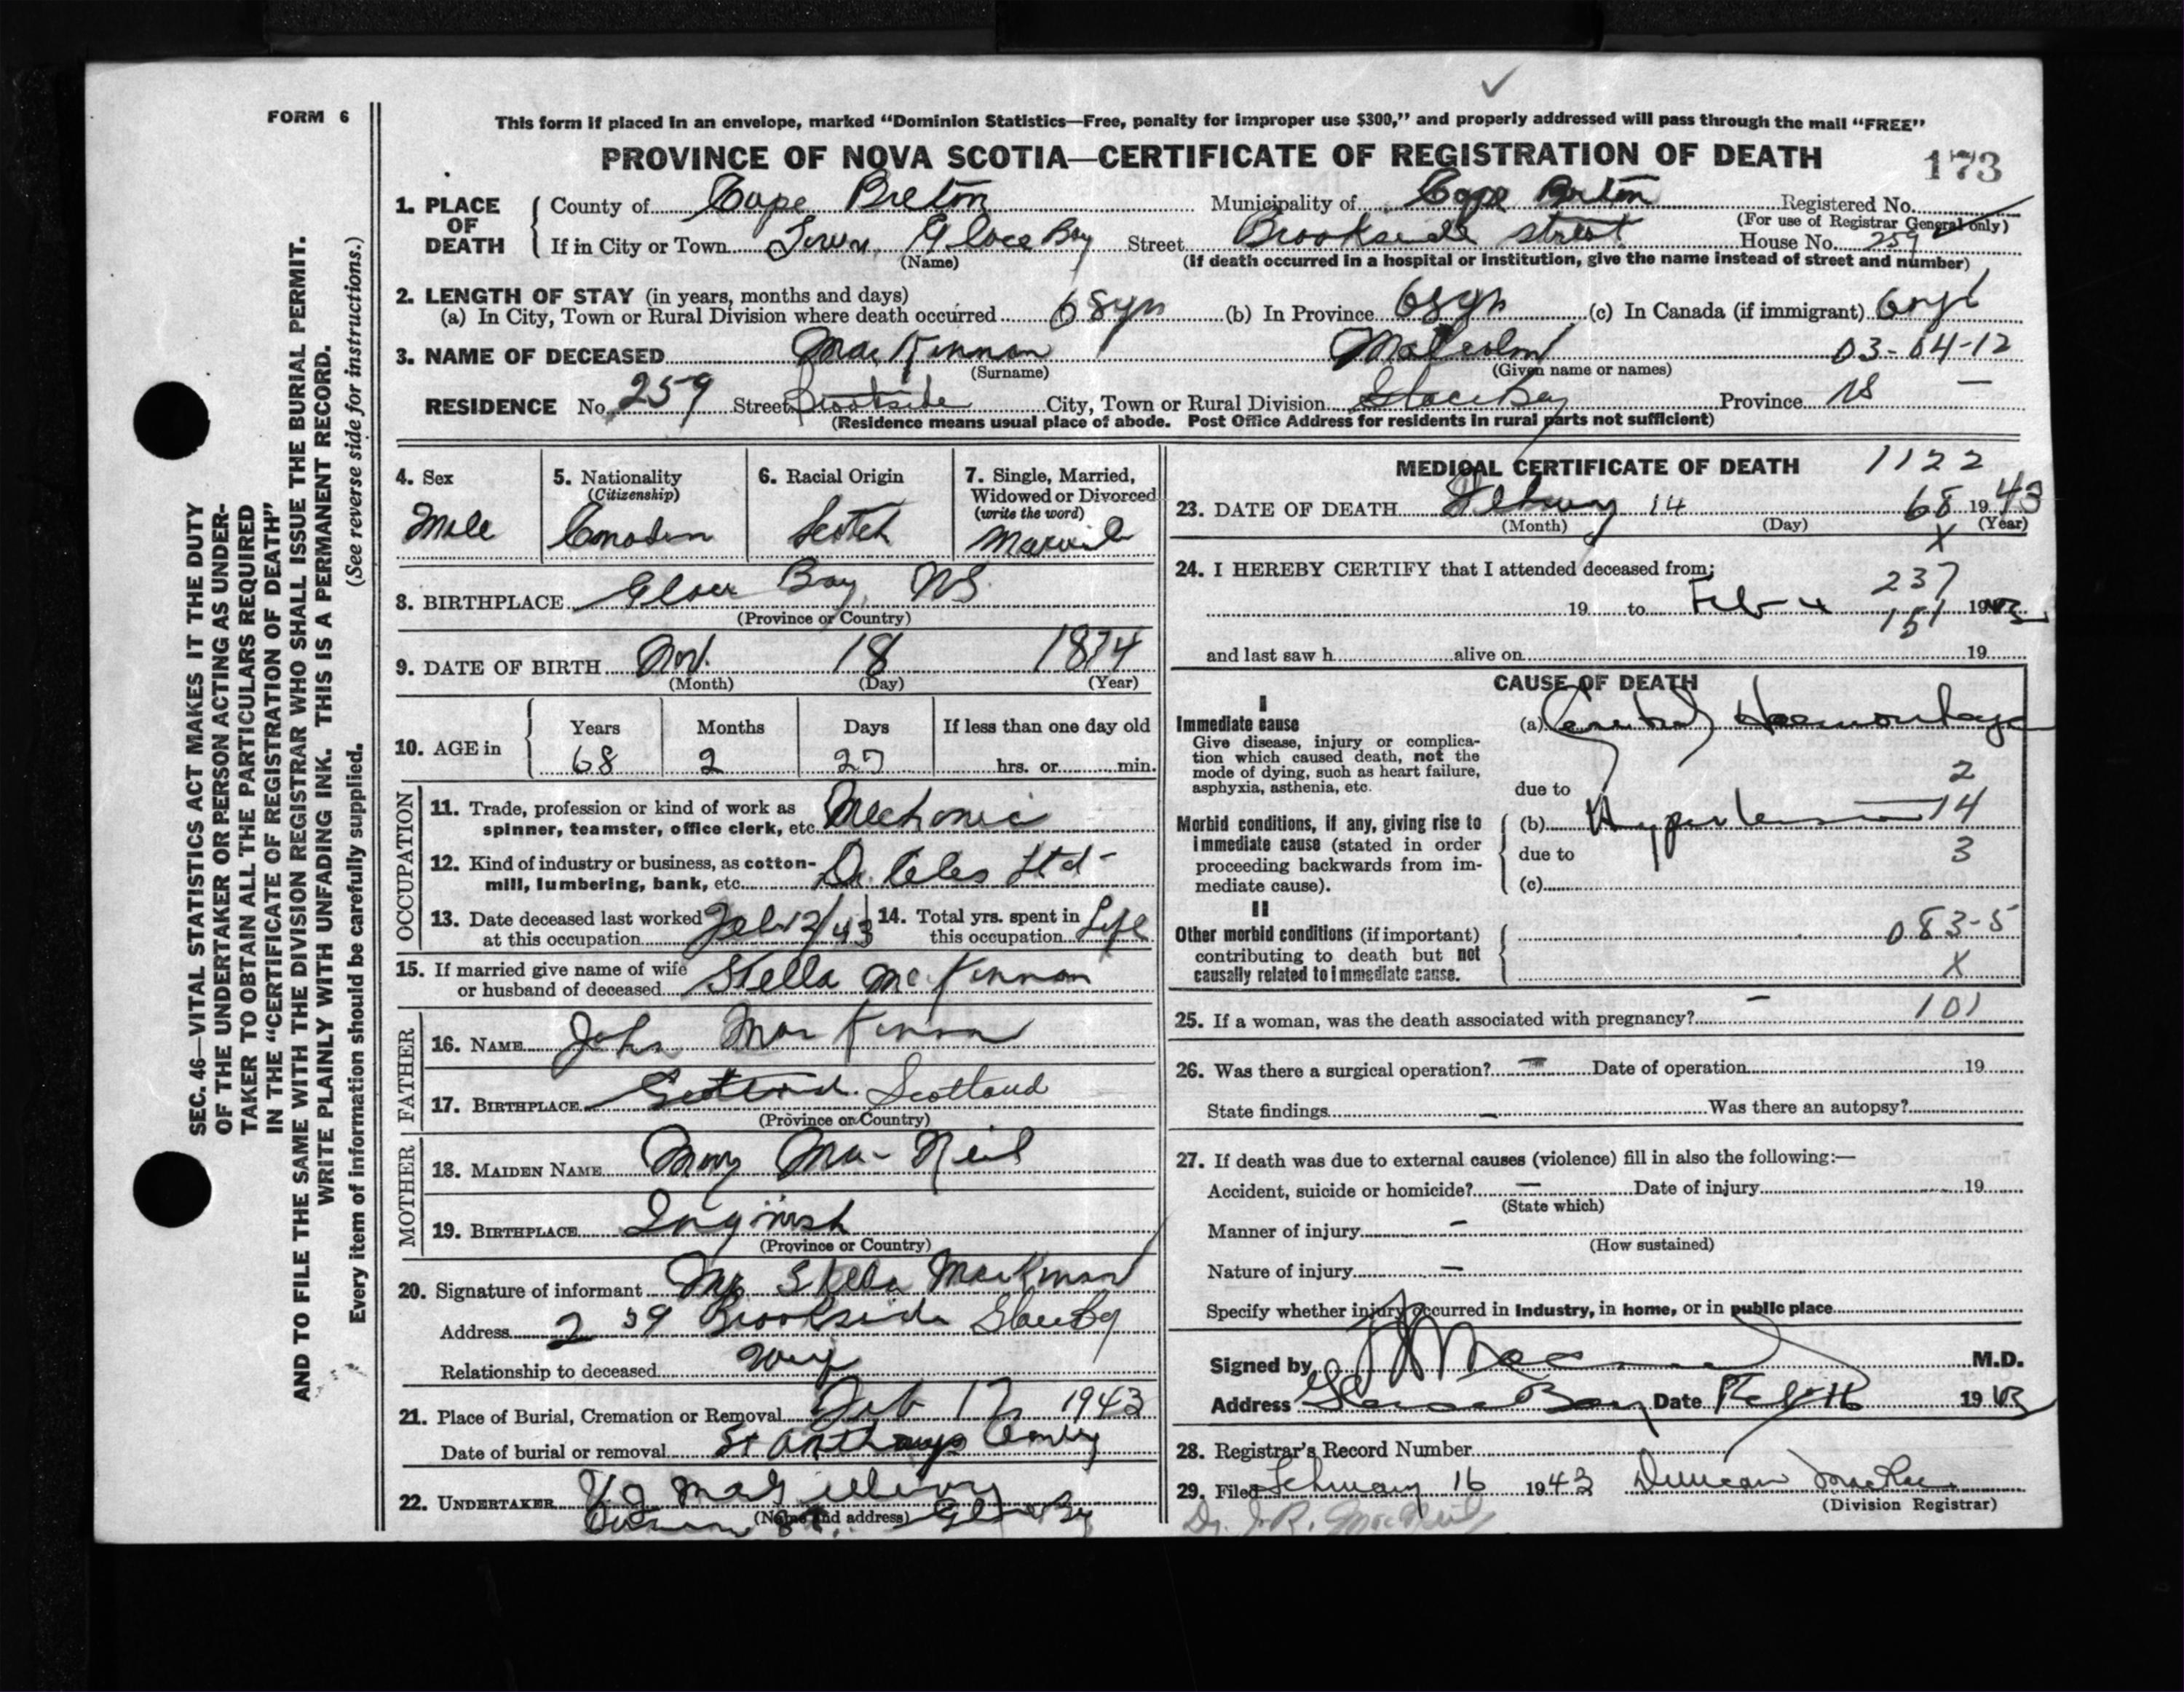 FORM 6
This form if placed in an envelope, marked “Dominion Statistics—Free, penalty for improper use $300,” and properly addressed will pass through the mail “FREE”
PROVINCE OF NOVA SCOTIA—CERTIFICATE OF REGISTRATION OF DEATH
173
1. PLACE OF DEATH
County of Cape Breton Municipality of Cape Breton Registered No.
(For use of Registrar General only)
If in City or Town Town Glace Bay Street Brookside street House No. 259
(Name) (If death occurred in a hospital or institution, give the name instead of street and number)
2. LENGTH OF STAY (in years, months and days)
(a) In City, Town or Rural Division where death occurred 68 yrs (b) In Province 68 yrs (c) In Canada (if immigrant)
3. NAME OF DECEASED MacKinnon Malcolm 03-04-12
(Surname) (Given name or names)
RESIDENCE No. 259 Street Brookside City, Town or Rural Division Glace Bay Province NS —
(Residence means usual place of abode. Post Office Address for residents in rural parts not sufficient)
4. Sex Male
5. Nationality (Citizenship) Canadian
6. Racial Origin Scotch
7. Single, Married, Widowed or Divorced (write the word) Married
8. BIRTHPLACE Glace Bay, NS.
(Province or Country)
9. DATE OF BIRTH Nov. 18 1874
(Month) (Day) (Year)
10. AGE in Years 68 Months 2 Days 27 If less than one day old hrs. or min.
OCCUPATION
11. Trade, profession or kind of work as spinner, teamster, office clerk, etc. Mechanic
12. Kind of industry or business, as cotton-mill, lumbering, bank, etc. Ltd-
13. Date deceased last worked at this occupation Feb 12/43
14. Total yrs. spent in this occupation Life
15. If married give name of wife or husband of deceased Stella McKinnon
FATHER
16. NAME John MacKinnon
17. BIRTHPLACE Scotland Scotland
(Province or Country)
MOTHER
18. MAIDEN NAME Mary Mac Neil
19. BIRTHPLACE Inginish
(Province or Country)
20. Signature of informant Mrs Stella MacKinnon
Address 259 Brookside Glace Bay
Relationship to deceased Wife
21. Place of Burial, Cremation or Removal Feb 17 1943
Date of burial or removal St Anthonys
22. UNDERTAKER
(Name and address) Glace Bay
MEDICAL CERTIFICATE OF DEATH 1122
23. DATE OF DEATH February 14 68 1943
(Month) (Day) (Year)
X
24. I HEREBY CERTIFY that I attended deceased from:
237
19 to Feb 4 1943
151
and last saw h alive on 19
CAUSE OF DEATH
I
Immediate cause
Give disease, injury or complication which caused death, not the mode of dying, such as heart failure, asphyxia, asthenia, etc.
(a) Cerebral Haemorrhage
2
due to
Morbid conditions, if any, giving rise to immediate cause (stated in order proceeding backwards from immediate cause).
(b) Hypertension 14
due to 3
(c)
II
Other morbid conditions (if important) contributing to death but not causally related to immediate cause.
083-5
X
25. If a woman, was the death associated with pregnancy? — 101
26. Was there a surgical operation? — Date of operation 19
State findings — Was there an autopsy?
27. If death was due to external causes (violence) fill in also the following:—
Accident, suicide or homicide? — Date of injury 19
(State which)
Manner of injury —
(How sustained)
Nature of injury —
Specify whether injury occurred in industry, in home, or in public place
Signed by M.D.
Address Glace Bay Date Feb 16 1943
28. Registrar's Record Number
29. Filed February 16 1943 Duncan MacRae
(Division Registrar)
Dr. J. R. MacNeil
SEC. 46—VITAL STATISTICS ACT MAKES IT THE DUTY
OF THE UNDERTAKER OR PERSON ACTING AS UNDER-
TAKER TO OBTAIN ALL THE PARTICULARS REQUIRED
IN THE “CERTIFICATE OF REGISTRATION OF DEATH”
AND TO FILE THE SAME WITH THE DIVISION REGISTRAR WHO SHALL ISSUE THE BURIAL PERMIT.
WRITE PLAINLY WITH UNFADING INK. THIS IS A PERMANENT RECORD.
Every item of information should be carefully supplied. (See reverse side for instructions.)